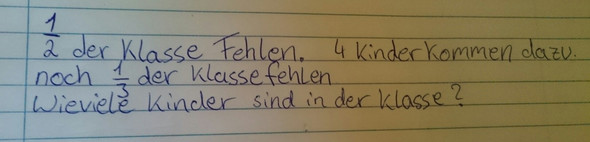 1/2 der Klasse Fehlen. 4 Kinder kommen dazu.
noch 1/3 der Klasse fehlen
Wieviele Kinder sind in der Klasse?